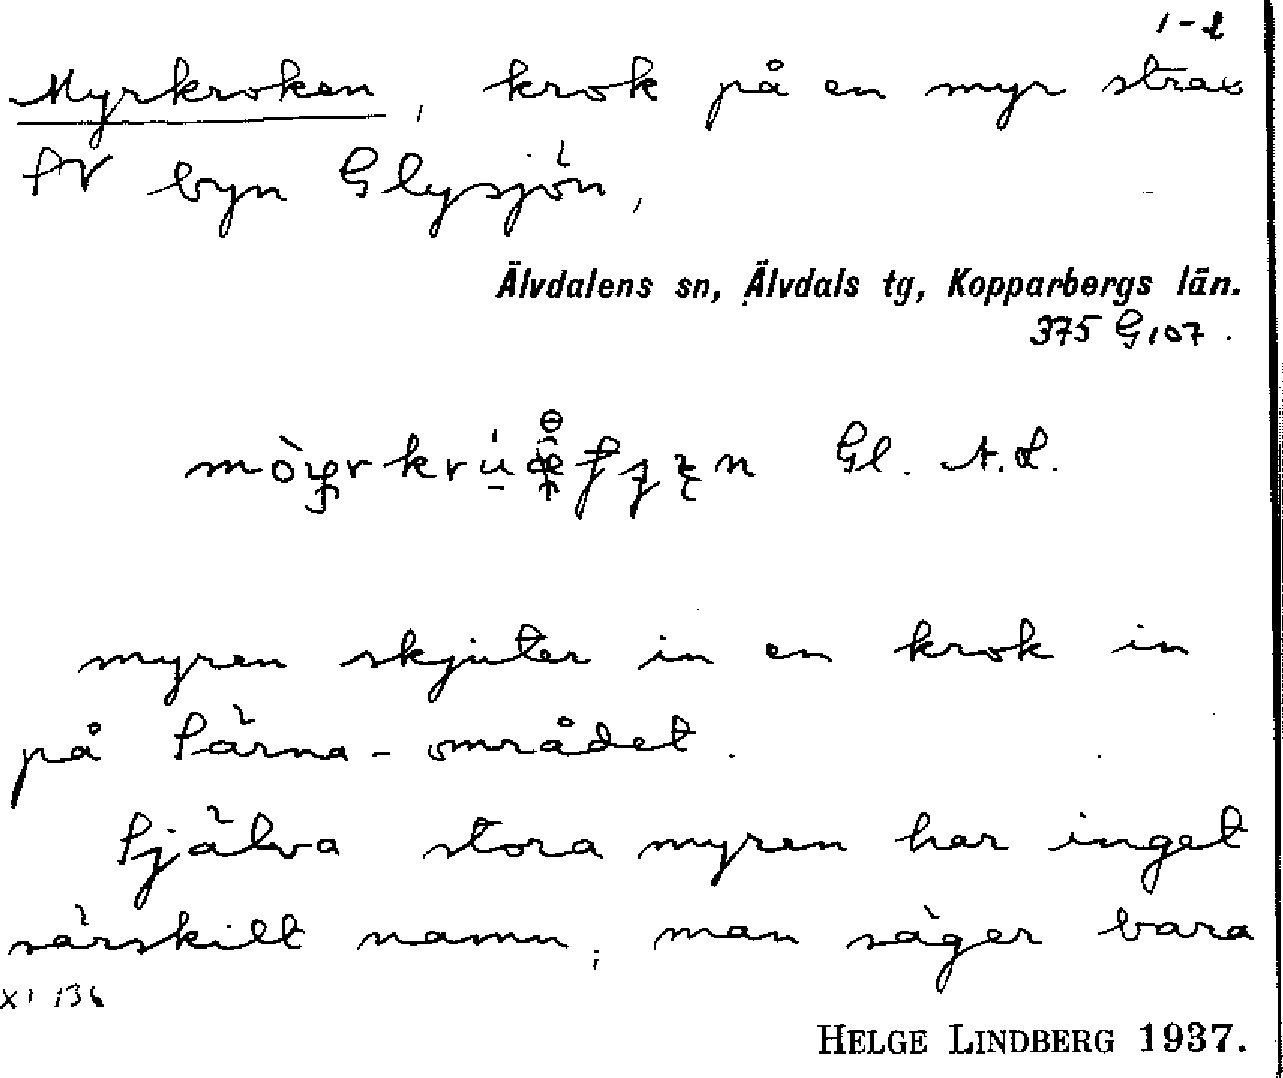 1-2
Myrkroken, krok på en myr strax
SV byn Glysjön,
Älvdalens sn, Älvdals tg, Kopparbergs län.
375 G107.
Gl. A.L.
myren skjuter in en krok in
på Särna-området.
Själva stora myren har inget
särskilt namn; man säger bara
HELGE LINDBERG 1937.